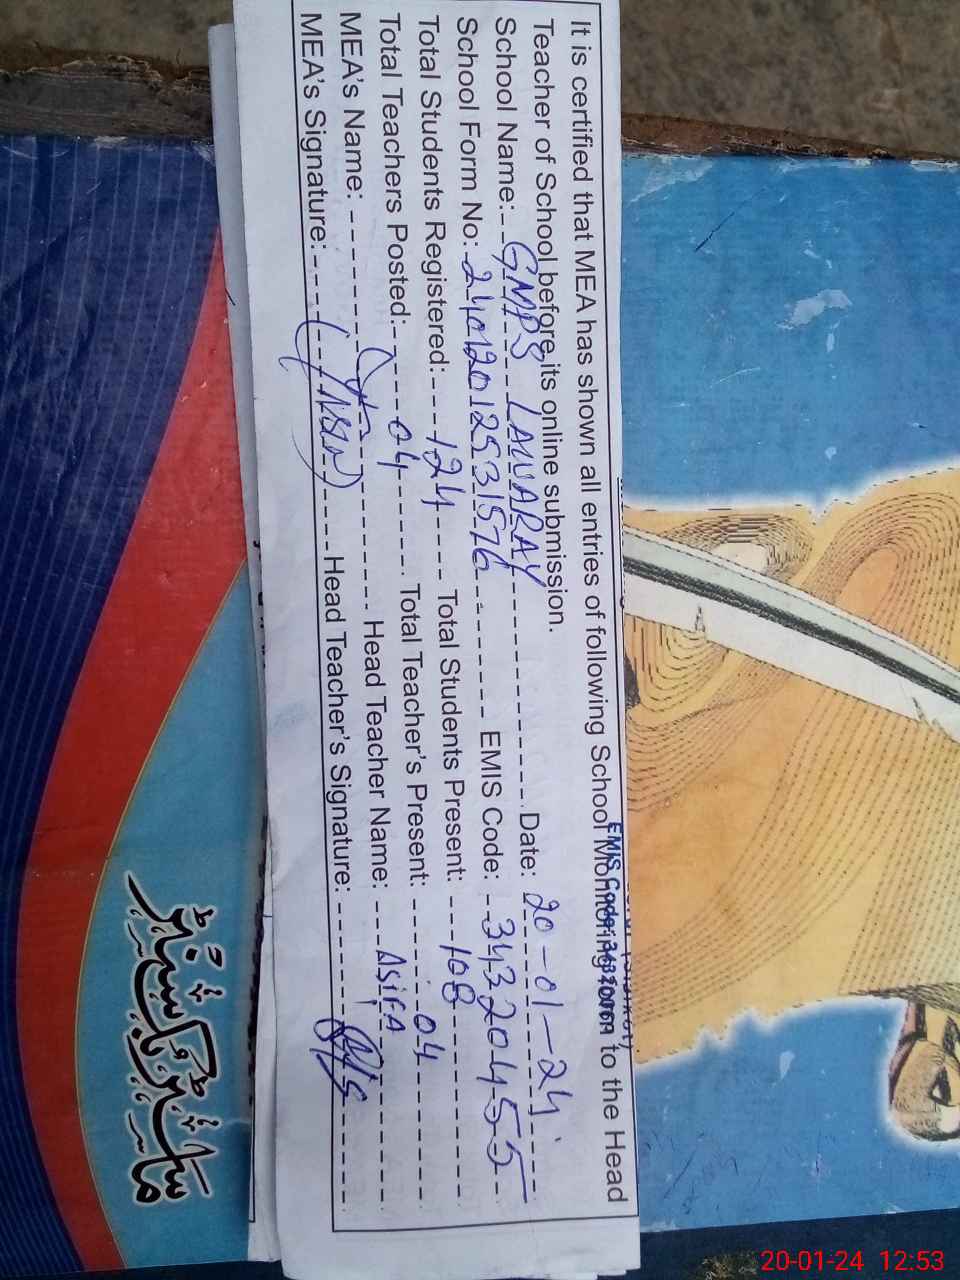 It is certified that MEA has shown all entries of following School Monitoring to the Head
Teacher of School before its online submission.
School Name: GMPS LAWARAY Date: 20-01-24
School Form No: 240120125331576 EMIS Code: 34320455
Total Students Registered: 124 Total Students Present: 108
Total Teachers Posted: 04 Total Teacher's Present: 04
MEA's Name: Head Teacher Name: ASiFA
MEA's Signature: (YASIN) Head Teacher's Signature:
EMIS Code:
ماسٹر رجسٹر
20-01-24 12:53